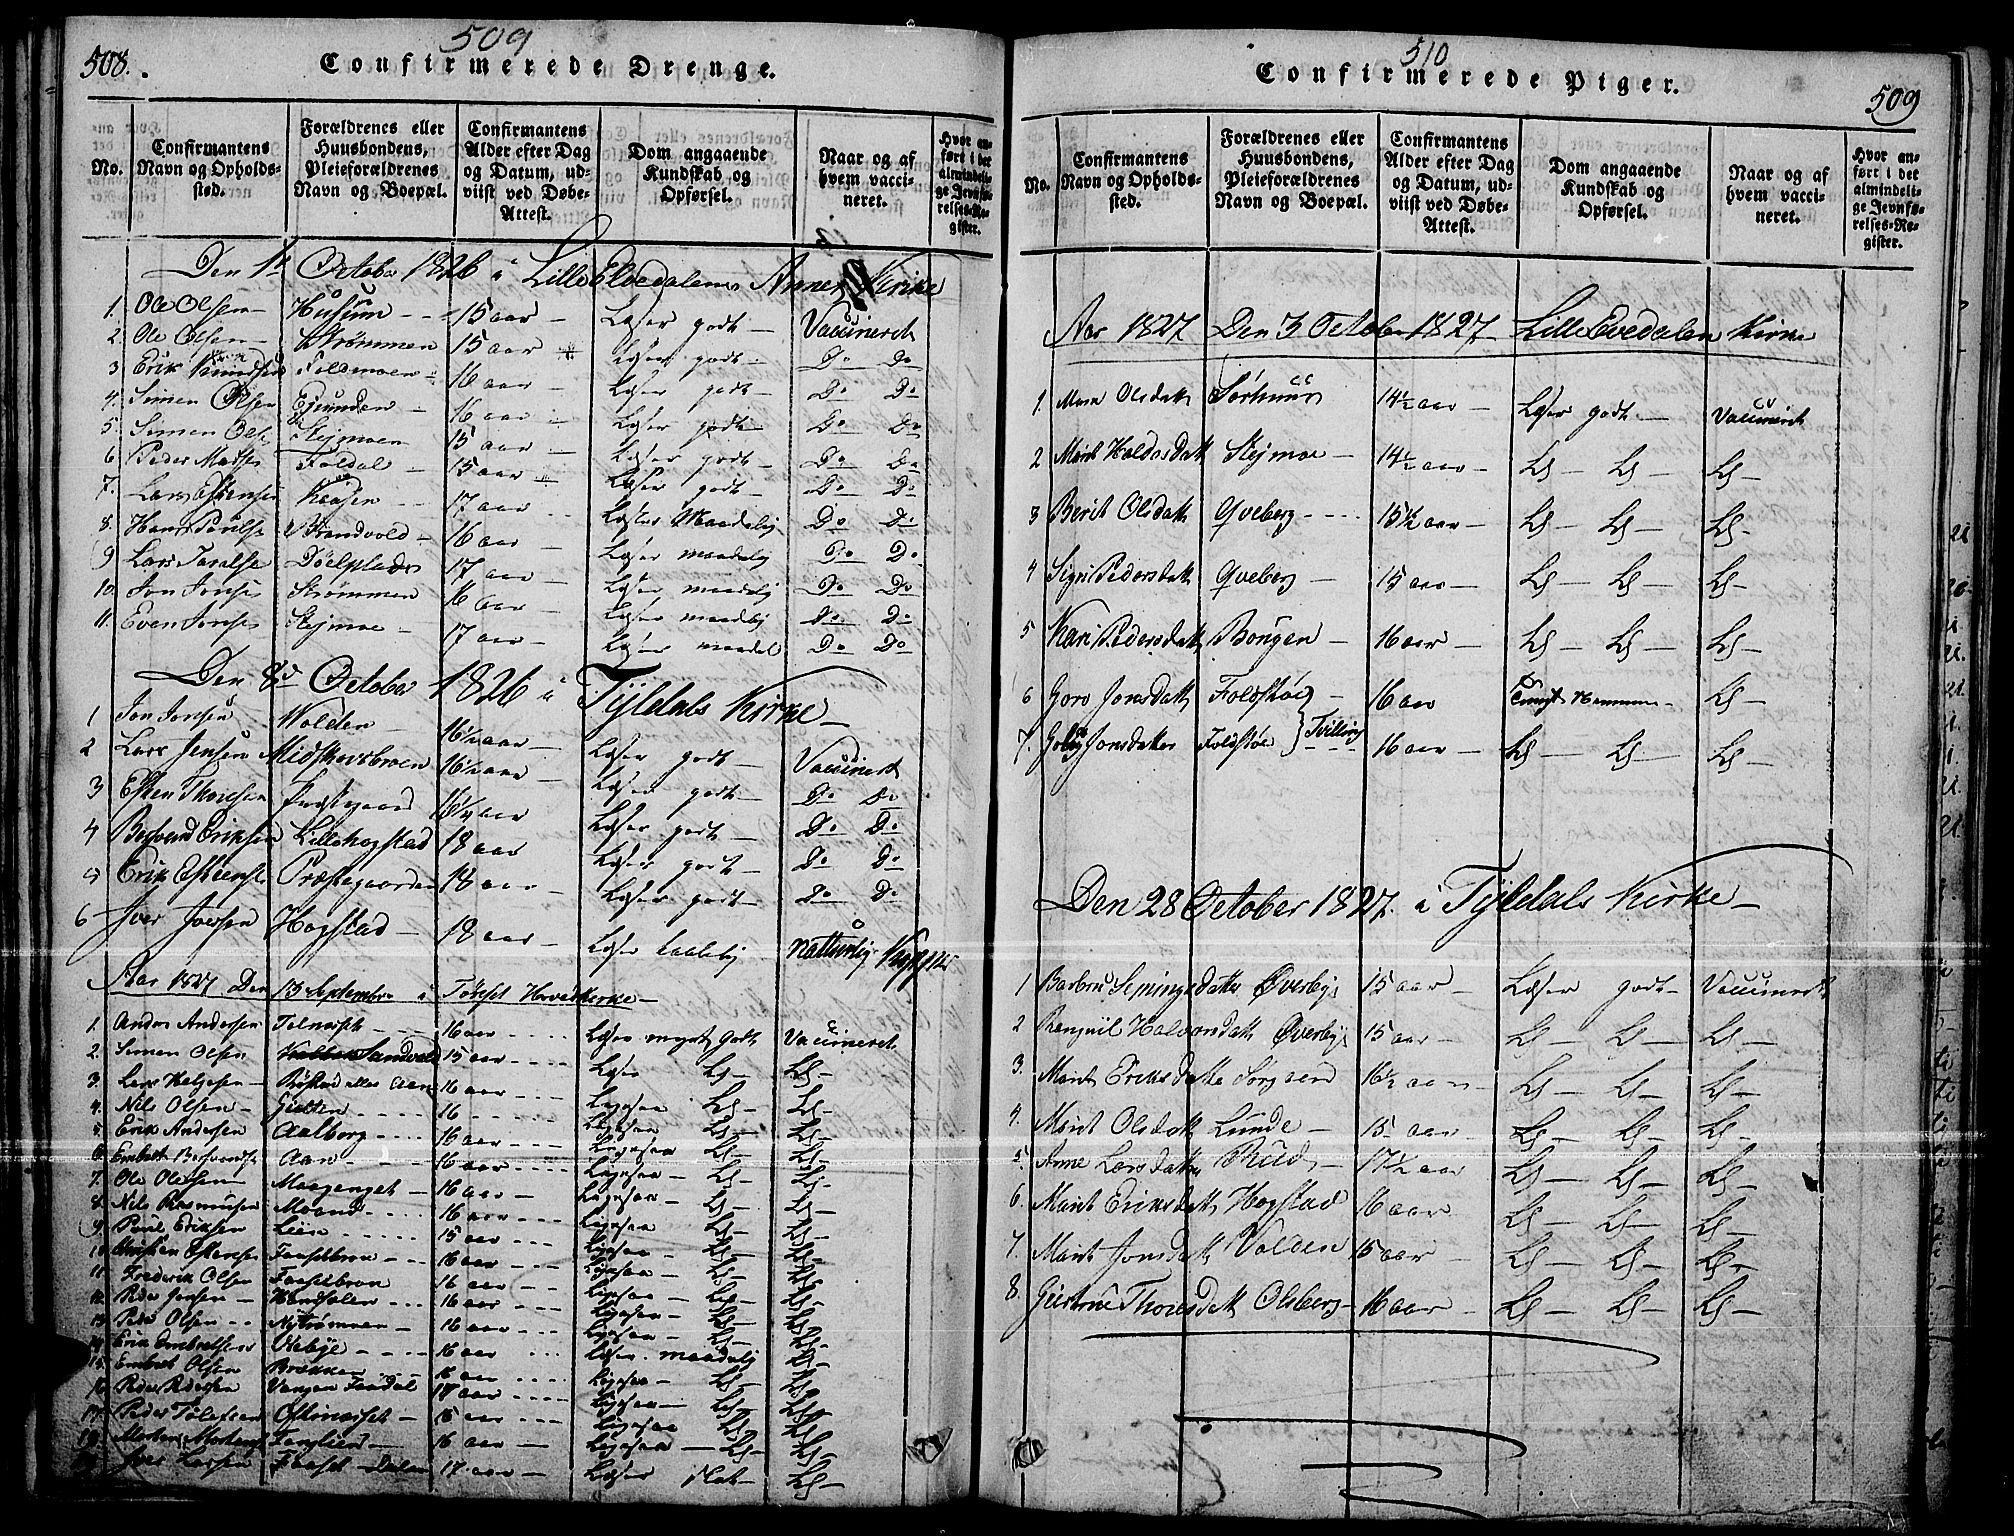 508.
509
Confirmerede Drenge.
No.
Confirmantens Navn og Opholds-sted.
Forældrenes eller Huusbondens, Pleieforældrenes Navn og Boepæl.
Confirmantens Alder efter Dag og Datum, ud-viist ved Døbe-Attest.
Dom angaaende Kundskab og Opførsel.
Naar og af hvem vacci-neret.
Hvor an-ført i det almindeli-ge Jevnfø-relses-Re-gister.
Den 1te October 1826 i Lille Elvedalens Annex Kirke
1. Ole Olsen Husum 15 aar Læser godt Vaccineret
2. Ole Olsen Strømmen 15 aar Læser godt Do Do
3 Erik Foldmoen 16 aar Læser godt Do Do
4. Simen Olsen Egnunden 16 aar Læser godt Do Do
5. Simen Olse Stejmoen 15 aar Læser godt Do Do
6 Peder Madse Foldal 15 aar Læser godt Do Do
7. Lars Estense Kaasen 17 aar Læser Maadelig Do Do
8. Hans Povelse Brendvold 16 aar Læser maadelig Do Do
9 Lars Døelplads 17 aar Læser maadelig Do Do
10. Jon Jonse Strømmen 16 aar Læser maadelig Do Do
11. Even Jonse Stejmoe 17 aar Læser maadel Do Do
Den 8de October 1826 i Tyldals Kirke
1 Jon Jonsen Wolden 16½ aar Læser godt Vaccineret
2 Lars Jensen Midskovsbroen 16½ aar Læser godt Do Do
3 Esten Thoresen 16¼ aar Læser godt Do Do
4 Eriksen Lillehogstad 18 aar Læser godt Do Do
5 Erik Estense Præstegaarden 18 aar Læser godt Do Do
6 Iver Joersen Hogstad 18 aar Læser taalelig Naturlig Kopper
Aar 1827 Den 13 September i Tønset Hovedkirke
1. Anders Andersen Telneset 16 aar Læser meget godt Vaccineret
2. Simen Olsen Sandvold 15 aar Læser Ls Ls
3. Lars Helgesen Røstad eller Aaen 16 aar Ligesaa Ls Ls
4. Nils Olsen Gielten 16 Ligesaa Ls Ls
5. Erik Andersen Aalborg 16 aar Ligesaa Ls Ls
6. Embret Aaen 16 aar Ligesaa Ls Ls
7. Ole Olessen Moagenget 16 aar Ligesaa Ls Ls
8. Nils Rasmusen Moane 16 aar Ligesaa Ls Ls
9. Paul Eriksen Leien 15 aar Ligesaa Ls Ls
10. Christian Estensen Faasetbroe 16 aar Ligesaa Ls Ls
11. Frederik Olsen Faasetbroen 16 aar Ligesaa Ls Ls
12. Peder Jensen 16 aar Ligesaa Ls Ls
13. Peder Olsen Nystrømoen 16 aar Ligesaa Ls Ls
14. Erik Embretsen 16 aar Læser maadelig Ls
15. Embret Olsen Brækken 16 aar Ligesaa Ls Ls
16. Peder Pedersen Vangen Faadal 18 aar Ligesaa Ls Ls
17. Peder Tolefsen 15 aar Ligesaa Ls Ls
18. Morten Mortens 16 aar Ligesaa Ls Ls
19. Iver Larsen Faaset Dalen 17 aar Læser slet Ls
510
Confirmerede Piger.
509
No.
Confirmantens Navn og Opholds-sted.
Forældrenes eller Huusbondens, Pleieforældrenes Navn og Boepæl.
Confirmantens Alder efter Dag og Datum, ud-viist ved Døbe-Attest.
Dom angaaende Kundskab og Opførsel.
Naar og af hvem vacci-neret.
Hvor an-ført i det almindeli-ge Jevnfø-relses-Re-gister.
Aar 1827 Den 3 October 1827 Lille Elvedalen Kirke
1. Mare Olsdatt Sørhuus 14½ aar Læser godt Vaccineret
2 Marit Haldosdatt Stejmoe 14½ aar Ls Ls Ls
3 Berit Olsdatt Qveberg 15½ aar Ls Ls Ls
4 Sigri Pedersdatt Qveberg 15 aar Ls Ls Ls
5 Kari Pedersdatt Borgen 16 aar Ls Ls Ls
6 Goro Jonsdatt Foldstøe 16 aar Ls
7. Jonsdatter Foldstøe } Tvilling 16 aar Ls Ls Ls
Den 28 October 1827. i Tyldals Kirke
1 Barbru Semingsdatter Øverbye 15 aar Læser godt Vaccineret
2 Rangnil Halvorsdatt Øverbye 15 aar Ls Ls Ls
3. Marit Eriksdatte Sorgaen 16½ aar Ls Ls Ls
4. Marit Olsdatt Lunde 15 aar Ls Ls Ls
5. Anne Larsdatter Rud 17½ aar Ls Ls Ls
6. Marit Eriksdatt Hogstad 16 aar Ls Ls Ls
7. Marit Jonsdatt Volden 15 aar Ls Ls Ls
8. Giertrue Thoresdatt Olsberg 16 aar Ls Ls Ls